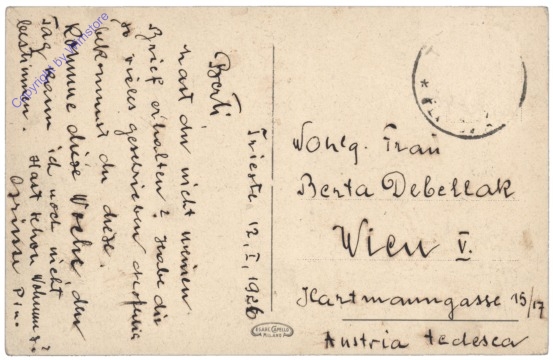 Berti,
hast du nicht meinen
Brief erhalten? Habe dir
so vieles geschrieben
bekommst du diese.
Komme diese Woche den
Tag kann ich noch nicht
bestimmen.
Hast schon Wohnung?
Triest 12. I. 1926
Wohlg. Frau
Berta Debellak
Wien V.
Hartmanngasse 15/17
Austria tedesca
Copyright by Grimstore